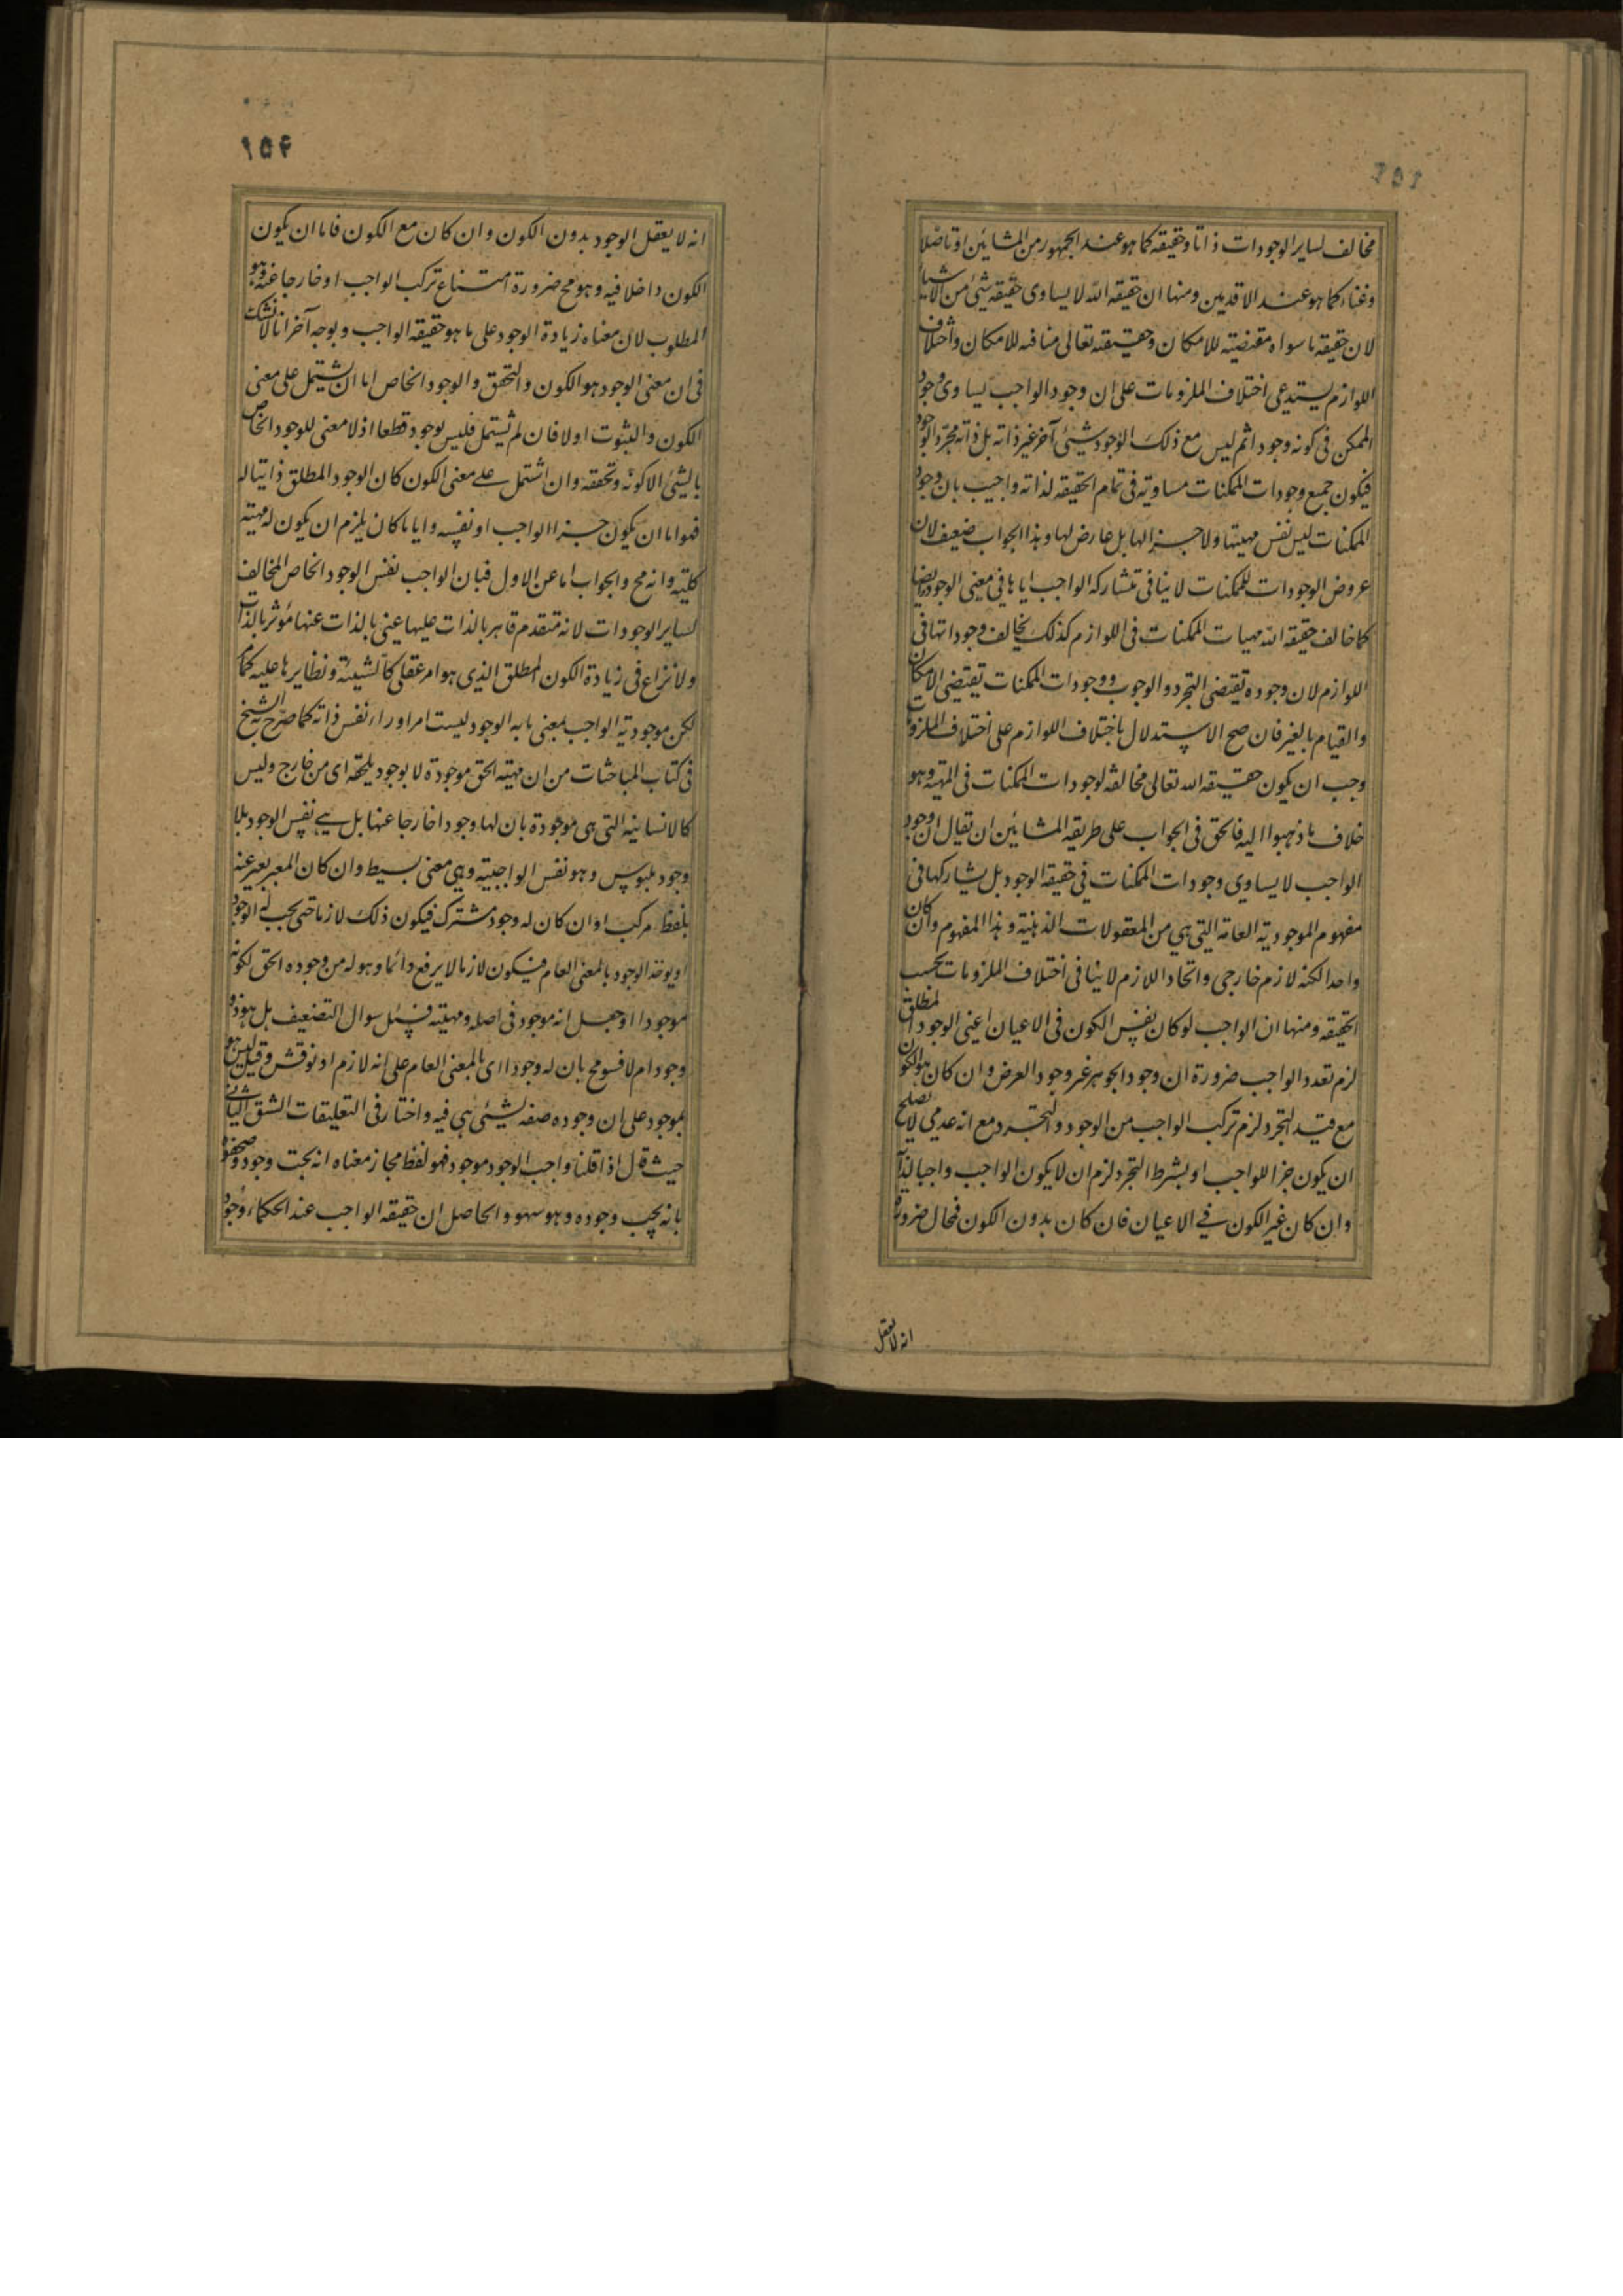 مخالف لساير الوجودات ذاتا وحقيقه كما هو عند الجمهور من المشائين او تاصلا
وغناء كما هو عند الاقدمين ومنها ان حقيقه الله لا يساوى حقيقه شئ من الاشيا
لان حقيقه ما سواه مقتضيته للامكان وحقيقته تعالى منافيه للامكان واختلاف
اللوازم يستدعى اختلاف الملزومات على ان وجود الواجب يساوى وجود
الممكن فى كونه وجود اثم ليس مع ذلك الوجود شيئى آخر غير ذاته بل ذاته مجرد الوجود
فيكون جميع وجودات الممكنات مساويه فى تمام الحقيقه لذاته واجيب بان وجود
الممكنات ليس نفس مهيتها ولا جزالها بل عارض لها وهذا الجواب ضعيف لان
عروض الوجودات للممكنات لا ينافى تشاركه الواجب اياها فى معنى الوجود ايضا
كما خالف حقيقه الله مهيات الممكنات فى اللوازم كذلك يخالف وجوداتها فى
اللوازم لان وجوده تقتضى التجرد والوجوب ووجودات الممكنات تقتضى الامكان
والقيام بالغير فان صح الاستدلال باختلاف اللوازم على اختلاف الملزو
وجب ان يكون حقيقه الله تعالى مخالفه لوجودات الممكنات فى المهيه وهو
خلاف ما ذهبوا اليه فالحق فى الجواب على طريقه المشائين ان تقال ان وجود
الواجب لا يساوى وجودات الممكنات فى حقيقه الوجود بل يشاركها فى
مفهوم الموجوديه العامه التى هى من المعقولات الذهنيه وهذا المفهوم وان كان
واحدا لكنه لازم خارجى واتحاد اللازم لا ينافى اختلاف الملزومات بحسب
الحقيقه ومنها ان الواجب لو كان نفس الكون فى الاعيان اعنى الوجود المطلق
لزم تعدد الواجب ضرورة ان وجود الجوهر غير وجود العرض وان كان هو الكون
مع قيد التجرد لزم تركب الواجب من الوجود والتجرد مع انه عدمى لا يصلح
ان يكون جزا للواجب او بشرط التجرد لزم ان لا يكون الواجب واجبا لذا
وان كان غير الكون فى الاعيان فان كان بدون الكون فمحال ضرورة
انه لا يعقل
١٥٤
انه لا يعقل الوجود بدون الكون وان كان مع الكون فاما ان يكون
الكون داخلا فيه وهو مح ضرورة امتناع تركب الواجب او خارجا عنه وهو
المطلوب لان معناه زيادة الوجود على ما هو حقيقه الواجب وبوجه آخر انا لا نشك
فى ان معنى الوجود هو الكون والتحقق والوجود الخاص اما ان يشتمل على معنى
الكون والثبوت اولا فان لم يشتمل فليس بوجود قطعا اذ لا معنى للوجود الخاص
بالشيئ الا كونه وتحققه وان اشتمل على معنى الكون كان الوجود المطلق ذاتيا له
فهو اما ان يكون جزا الواجب او نفسه وايا ما كان يلزم ان يكون له مهيته
كليه وانه مح والجواب اما عن الاول فبان الواجب نفس الوجود الخاص المخالف
لساير الوجودات لانه متقدم قاهر بالذات عليها غنى بالذات عنها مؤثر بالذات
ولا نزاع فى زيادة الكون المطلق الذى هو امر عقلى كالشيئه ونظايرها عليه كما
لكن موجوديه الواجب بمعنى ما به الوجود ليست امرا وراء نفس ذاته كما صرح به الشيخ
فى كتاب المباحثات من ان مهيته الحق موجودة لا بوجود يلحقه اى من خارج وليس
كالانسانيه التى هى موجودة بان لها وجودا خارجا عنها بل هى نفس الوجود بلا
وجود ملبوس وهو نفس الواجبيه وهى معنى بسيط وان كان المعبر يعبر عنه
بلفظ مركب او ان كان له وجود مشترك فيكون ذلك لازما حتى يجب له الوجود
او يوخذ الوجود بالمعنى العام فيكون لازما لا يرفع دائما وهو له من وجوده الحق لكونه
موجودا او جعل انه موجود فى اصله ومهيته فسئل سوال التضعيف بل هو ذو
وجود ام لا فسومح بان له وجودا اى بالمعنى العام على انه لازم او نوقش وقيل ليس هو
بموجود على ان وجوده صفه لشيئى هى فيه واختار فى التعليقات الشق الثانى
حيث قال اذا قلنا واجب الوجود موجود فهو لفظ مجاز معناه انه يجب وجوده وصحفوه
بانه يجب وجوده وهو سهو والحاصل ان حقيقه الواجب عند الحكماء وجود